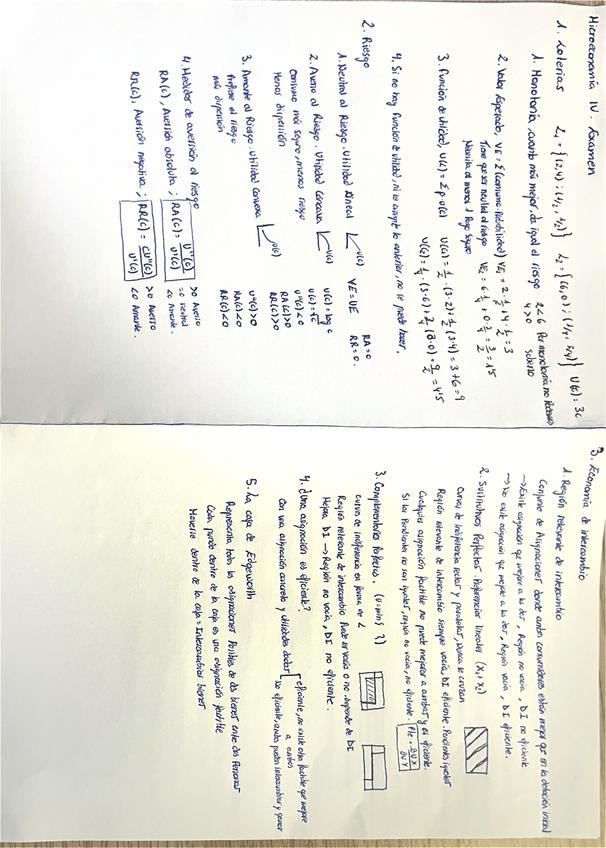 Microeconomía IV. Examen
1. Loterías L1 = {(2,4); (1/2, 1/2)} L2 = {(6,0); (1/4, 3/4)} U(c) = 3c
1. Monotonía, cuanto más mejor, da igual el riesgo 2<6 Por monotonía no podemos
4>0 saberlo
2. Valor Esperado, VE = Σ (consumo · Probabilidad) VE1 = 2·1/2 + 4·1/2 = 3
Tiene que ser neutral al riesgo VE2 = 6·1/4 + 0·3/4 = 3/2 = 1'5
Necesita al menos 1 Pago seguro
3. Función de utilidad, U(L) = Σ p·u(c) U(L) = 1/2·(3·2) + 1/2(3·4) = 3+6 = 9
U(L) = 1/4·(3·6) + 3/4(3·0) = 9/2 = 4'5
4. Si no hay función de utilidad, ni se cumple lo anterior, no se puede hacer.
2. Riesgo
1. Neutral al Riesgo. Utilidad Lineal U(c) VE = UE RA=0
RR=0.
2. Averso al Riesgo. Utilidad Cóncava U(c) U(c)=log c
Consumo más seguro, menos riesgo U(c)=√c
Menos dispersión U''(c)<0
RA(c)>0
RR(c)>0
3. Amante al Riesgo. Utilidad Convexa U(c) U''(c)>0
Prefiere el riesgo RA(c)<0
más dispersión RR(c)<0
4. Medidor de aversión al riesgo
RA(c), Aversión absoluta; RA(c) = - U''(c)/U'(c) >0 Averso
=0 Neutral
<0 Amante.
RR(c), Aversión negativa; RR(c) = - cU''(c)/U'(c) >0 Averso
<0 Amante.
3. Economía de intercambio
1. Región relevante de intercambio
Conjunto de Asignaciones donde ambos consumidores están mejor que en la dotación inicial
→ Existe asignación que mejore a los dos, Región no vacía, DI no eficiente
→ No existe asignación que mejore a los dos, Región vacía, DI eficiente.
2. Sustitutivos Perfectos. Preferencias lineales (x1+x2)
Curvas de indiferencia rectas y paralelas, Nunca se cruzan
Región relevante de intercambio siempre vacía, DI eficiente. Pendientes iguales
Cualquier asignación factible no puede mejorar a ambos y es eficiente.
Si las Pendientes no son iguales, región no vacía, no eficiente.
3. Complementarios Perfectos. (u=min{ })
Curvas de indiferencia en forma de L
Región relevante de intercambio Puede ser vacía o no, depende de DI
Mejora DI → Región no vacía, DI no eficiente.
4. ¿Una asignación es eficiente?
Con una asignación concreta y utilidades dadas eficiente, no existe otra factible que mejore
a ambos
No eficiente, ambos pueden intercambiar y ganar
5. La caja de Edgeworth
Representa todas las asignaciones Posibles de dos bienes entre dos Personas
Cada punto dentro de la caja es una asignación factible
Moverse dentro de la caja = Intercambiar bienes